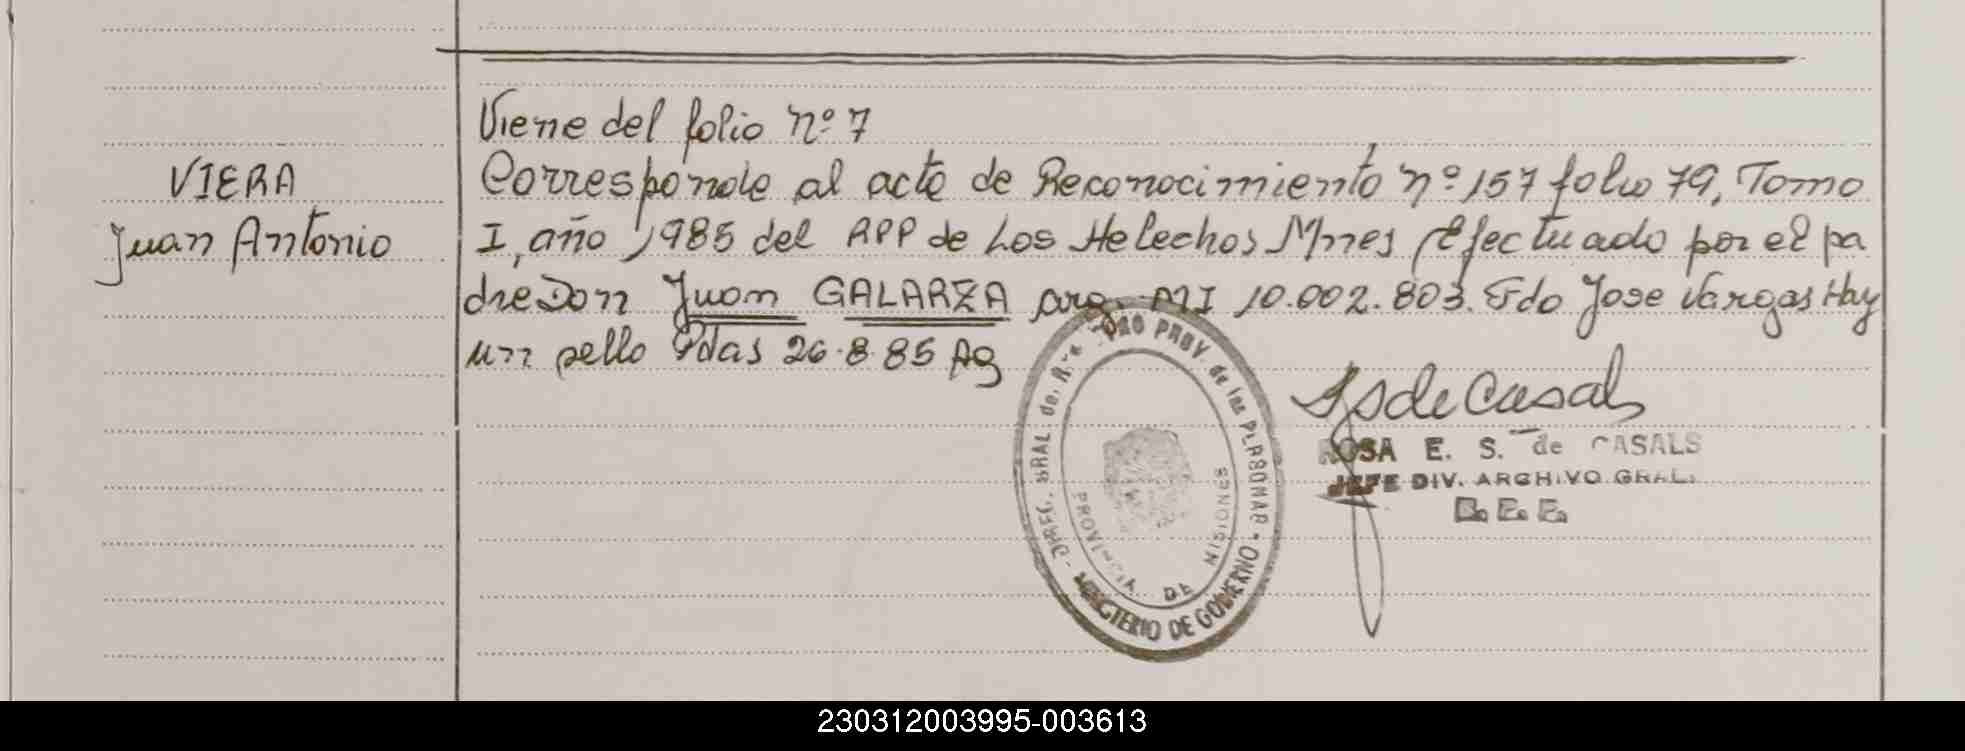 Viene del folio nº 7
VIERA
Juan Antonio
Corresponde al acta de Reconocimiento nº 157 folio 79, Tomo
I, año 1985 del RPP de Los Helechos Mnes efectuado por el pa
dre Don Juan GALARZA arg. MI 10.002.803. Fdo Jose Vargas Hay
un sello Pdas 26.8.85 Ag
ROSA E. S. de CASALS
JEFE DIV. ARCHIVO GRAL.
PROV. de las PERSONAS
MINISTERIO DE GOBIERNO
PROVINCIA DE MISIONES
230312003995-003613